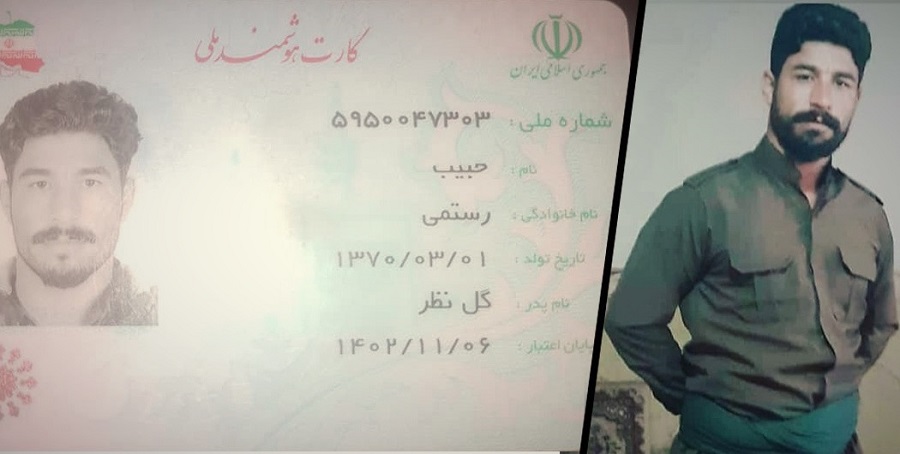 کارت هوشمند ملی
جمهوری اسلامی ایران
شماره ملی: ۵۹۵۰۰۴۷۳۰۳
نام: حبیب
نام خانوادگی: رستمی
تاریخ تولد: ۱۳۷۰/۰۳/۰۱
نام پدر: گل نظر
پایان اعتبار: ۱۴۰۲/۱۱/۰۶